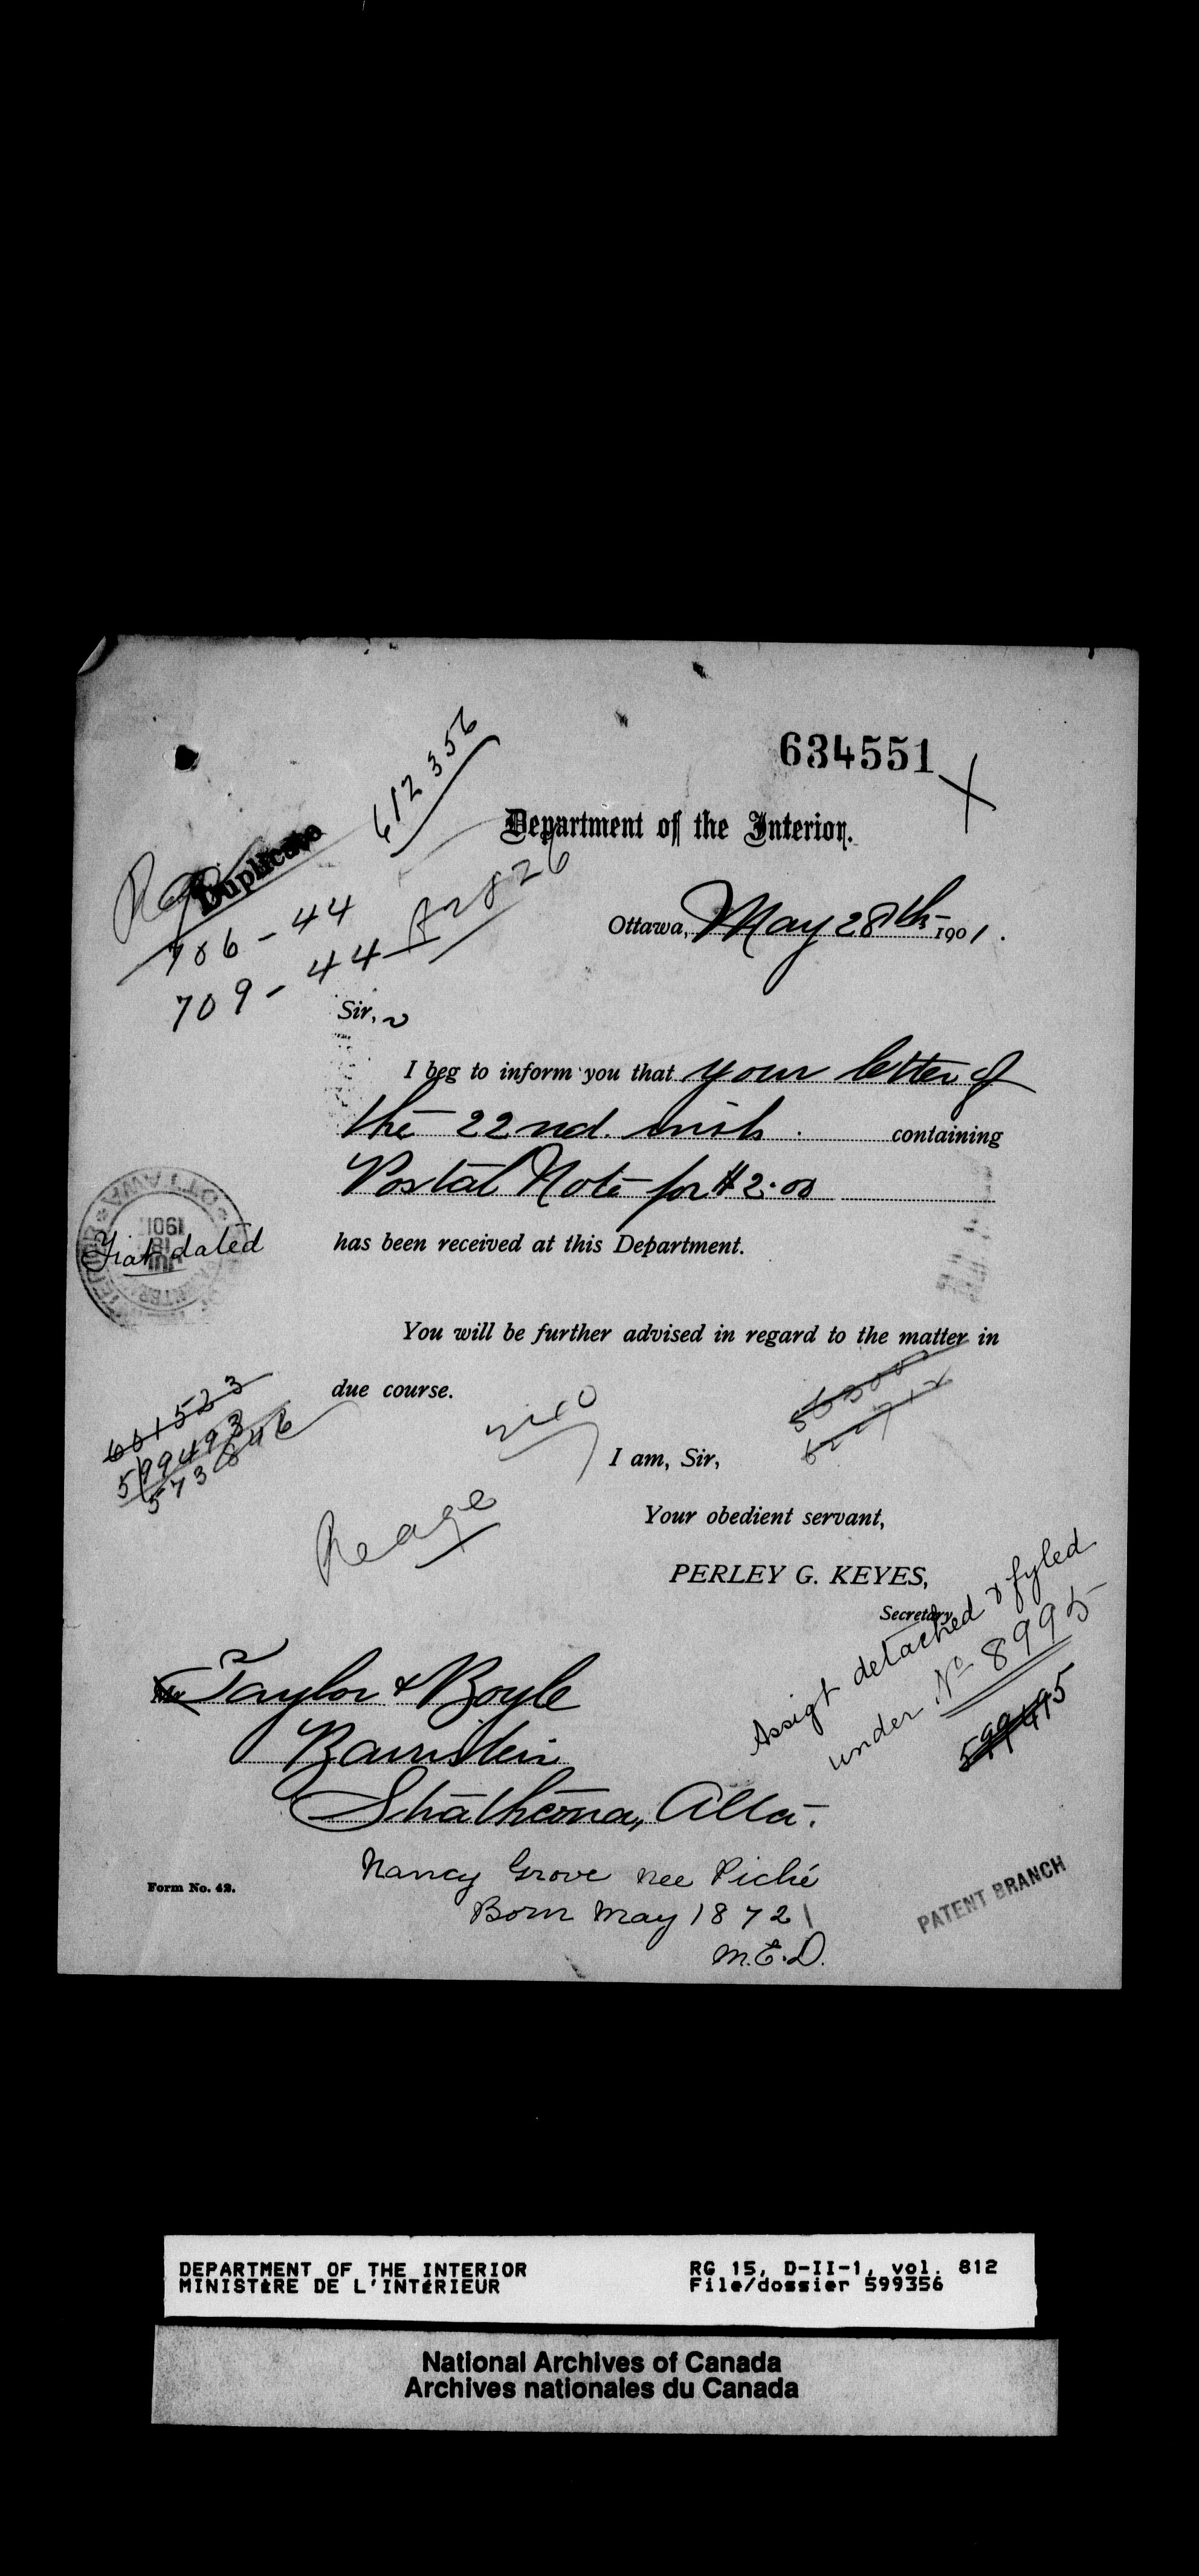 634551
612356
Department of the Interior.
Duplicate
706-44
709-44
A2826
Ottawa, May 28th 1901.
Sir,
I beg to inform you that your letter of
the 22nd. inst. containing
Postal Note for $2.00
has been received at this Department.
Fiat dated
OTTAWA
1901
You will be further advised in regard to the matter in
due course.
601523
599493
573846
I am, Sir,
Your obedient servant,
PERLEY G. KEYES,
Secretary.
Assigt detached & fyled
under No 8995
Taylor & Boyle
Barristers
Strathcona, Alta.
Nancy Grove nee Piché
Born May 1872
M.E.D.
Form No. 42.
PATENT BRANCH
DEPARTMENT OF THE INTERIOR
MINISTÈRE DE L'INTÉRIEUR
RG 15, D-II-1, vol. 812
File/dossier 599356
National Archives of Canada
Archives nationales du Canada